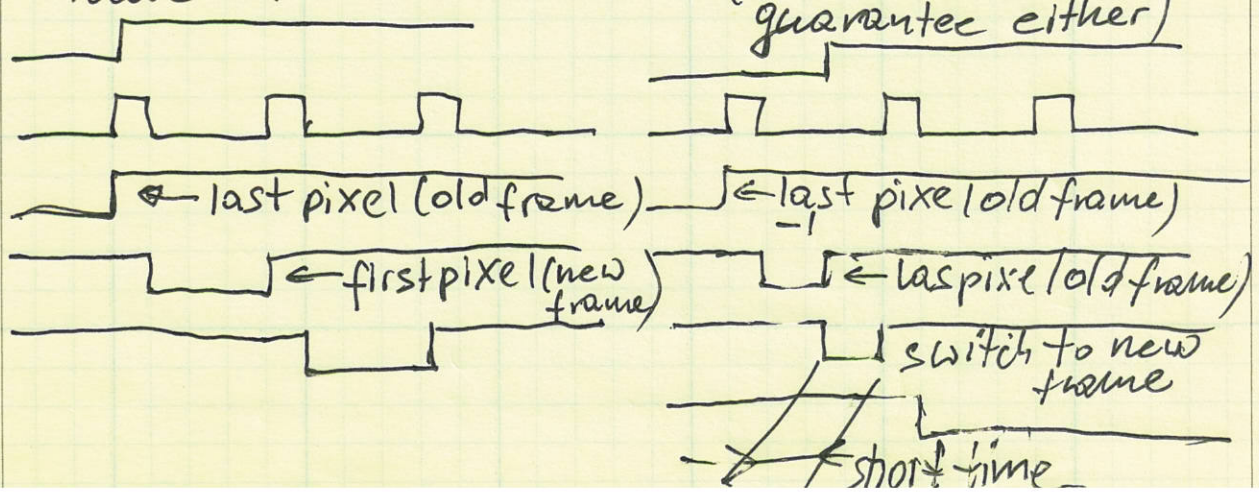 guarantee either)
← last pixel (old frame)
← last pixel old frame)
-1
← first pixel (new
frame)
← las pixel old frame)
switch to new
frame
← short time